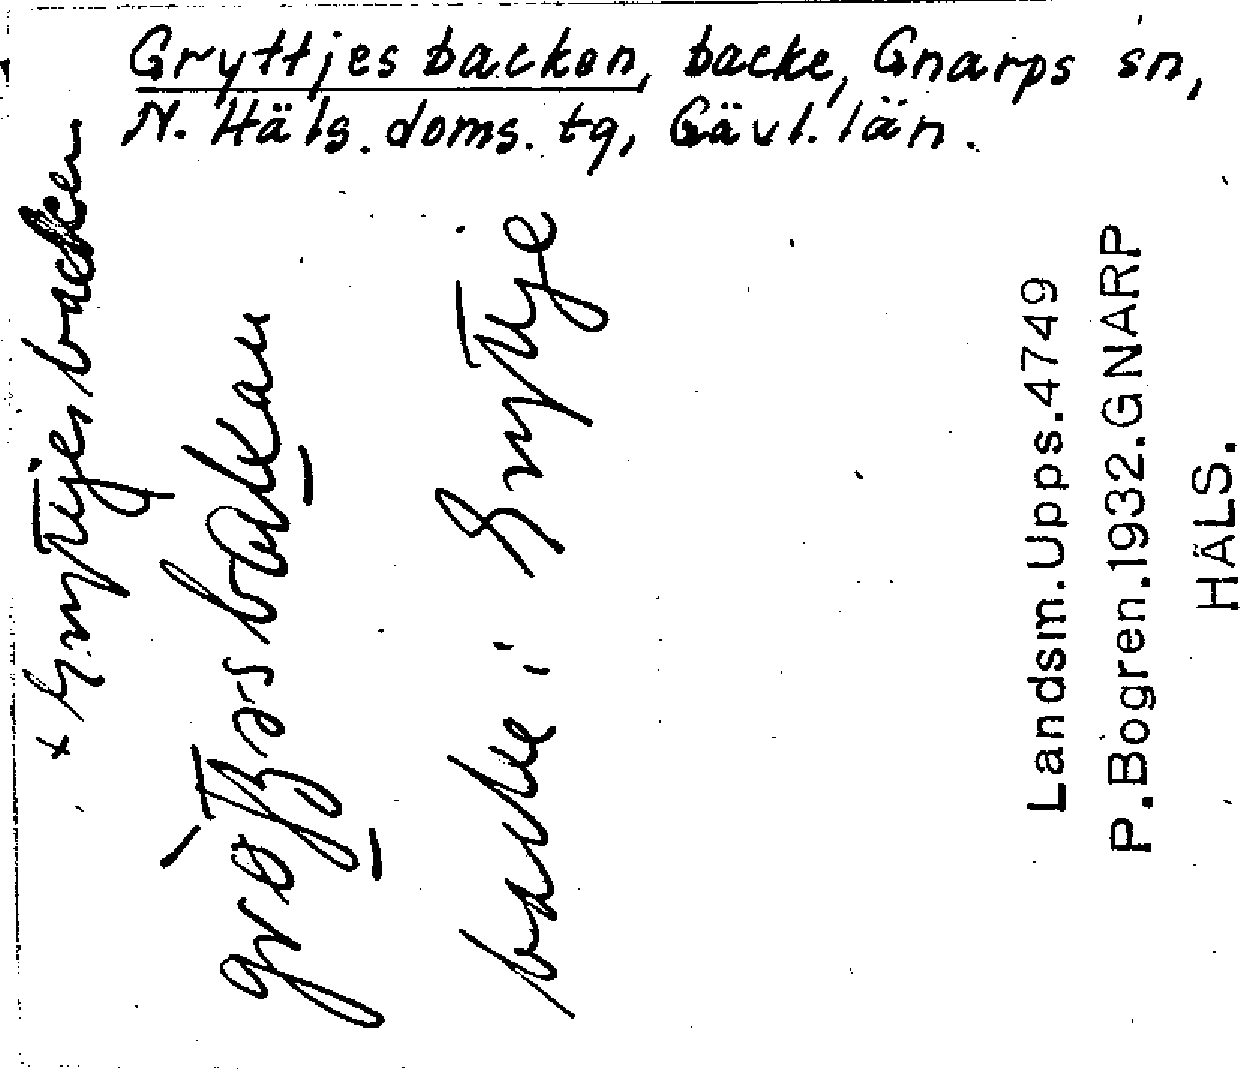 Gryttjesbacken, backe, Gnarps sn,
N. Häls. doms. tg, Gävl. län.
+ Gryttjesbacken
backe i Gryttje
Landsm. Upps. 4749
P. Bogren. 1932. GNARP
HÄLS.